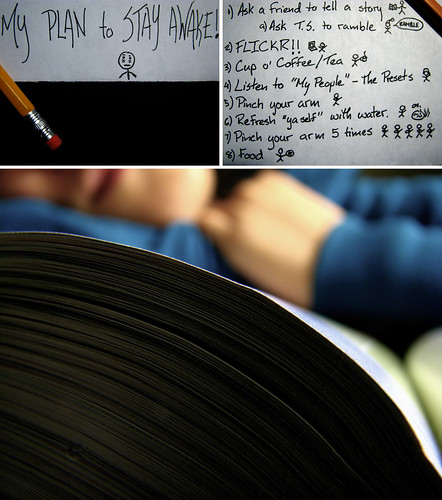 My PLAN to STAY AWAKE!
1) Ask a Friend to tell a story
a) Ask T.S. to ramble RAMBLE
2) FLICKR!!
3) Cup o' Coffee/Tea
4) Listen to "My People" - The Presets
5) Pinch your arm
6) Refresh "ya self" with water. or
7) Pinch your arm 5 times
8) Food